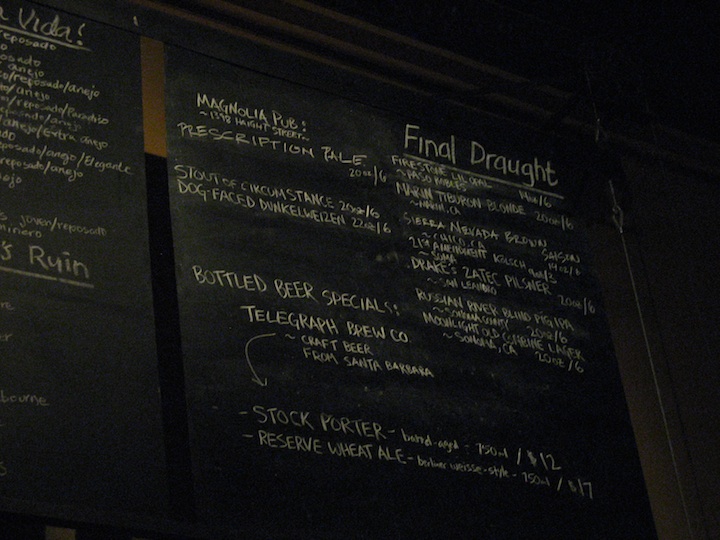 Vida!
reposado
osado
añejo
o/reposado/añejo
to/añejo
o/reposado/Paradiso
reposado/añejo
añejo/Extra añejo
reposado/añejo/Elegante
reposado/añejo
ejo
joven/reposado
minero
's Ruin
bourne
MAGNOLIA PUB:
~1398 HAIGHT STREET~
PRESCRIPTION PALE
20oz/6
STOUT OF CIRCUMSTANCE 20oz/6
DOG-FACED DUNKELWEIZEN 22oz/6
BOTTLED BEER SPECIALS:
TELEGRAPH BREW CO.
~ CRAFT BEER
FROM SANTA BARBARA
- STOCK PORTER - barrel-aged - 750ml / $12
- RESERVE WHEAT ALE - berliner weisse-style - 750ml / $17
Final Draught
FIRESTONE
~ PASO ROBLES
MARIN TIBURON BLONDE 20oz/6
~ MARIN, CA
SIERRA NEVADA BROWN SAISON
~ CHICO, CA 14oz/6
21st AMENDMENT KOLSCH
~ SOMA
DRAKE'S ZATEC PILSNER
~ SAN LEANDRO 20oz/6
RUSSIAN RIVER BLIND PIG IPA
~ SONOMA COUNTY 20oz/6
MOONLIGHT OLD COMBINE LAGER
~ SONOMA, CA 20oz/6